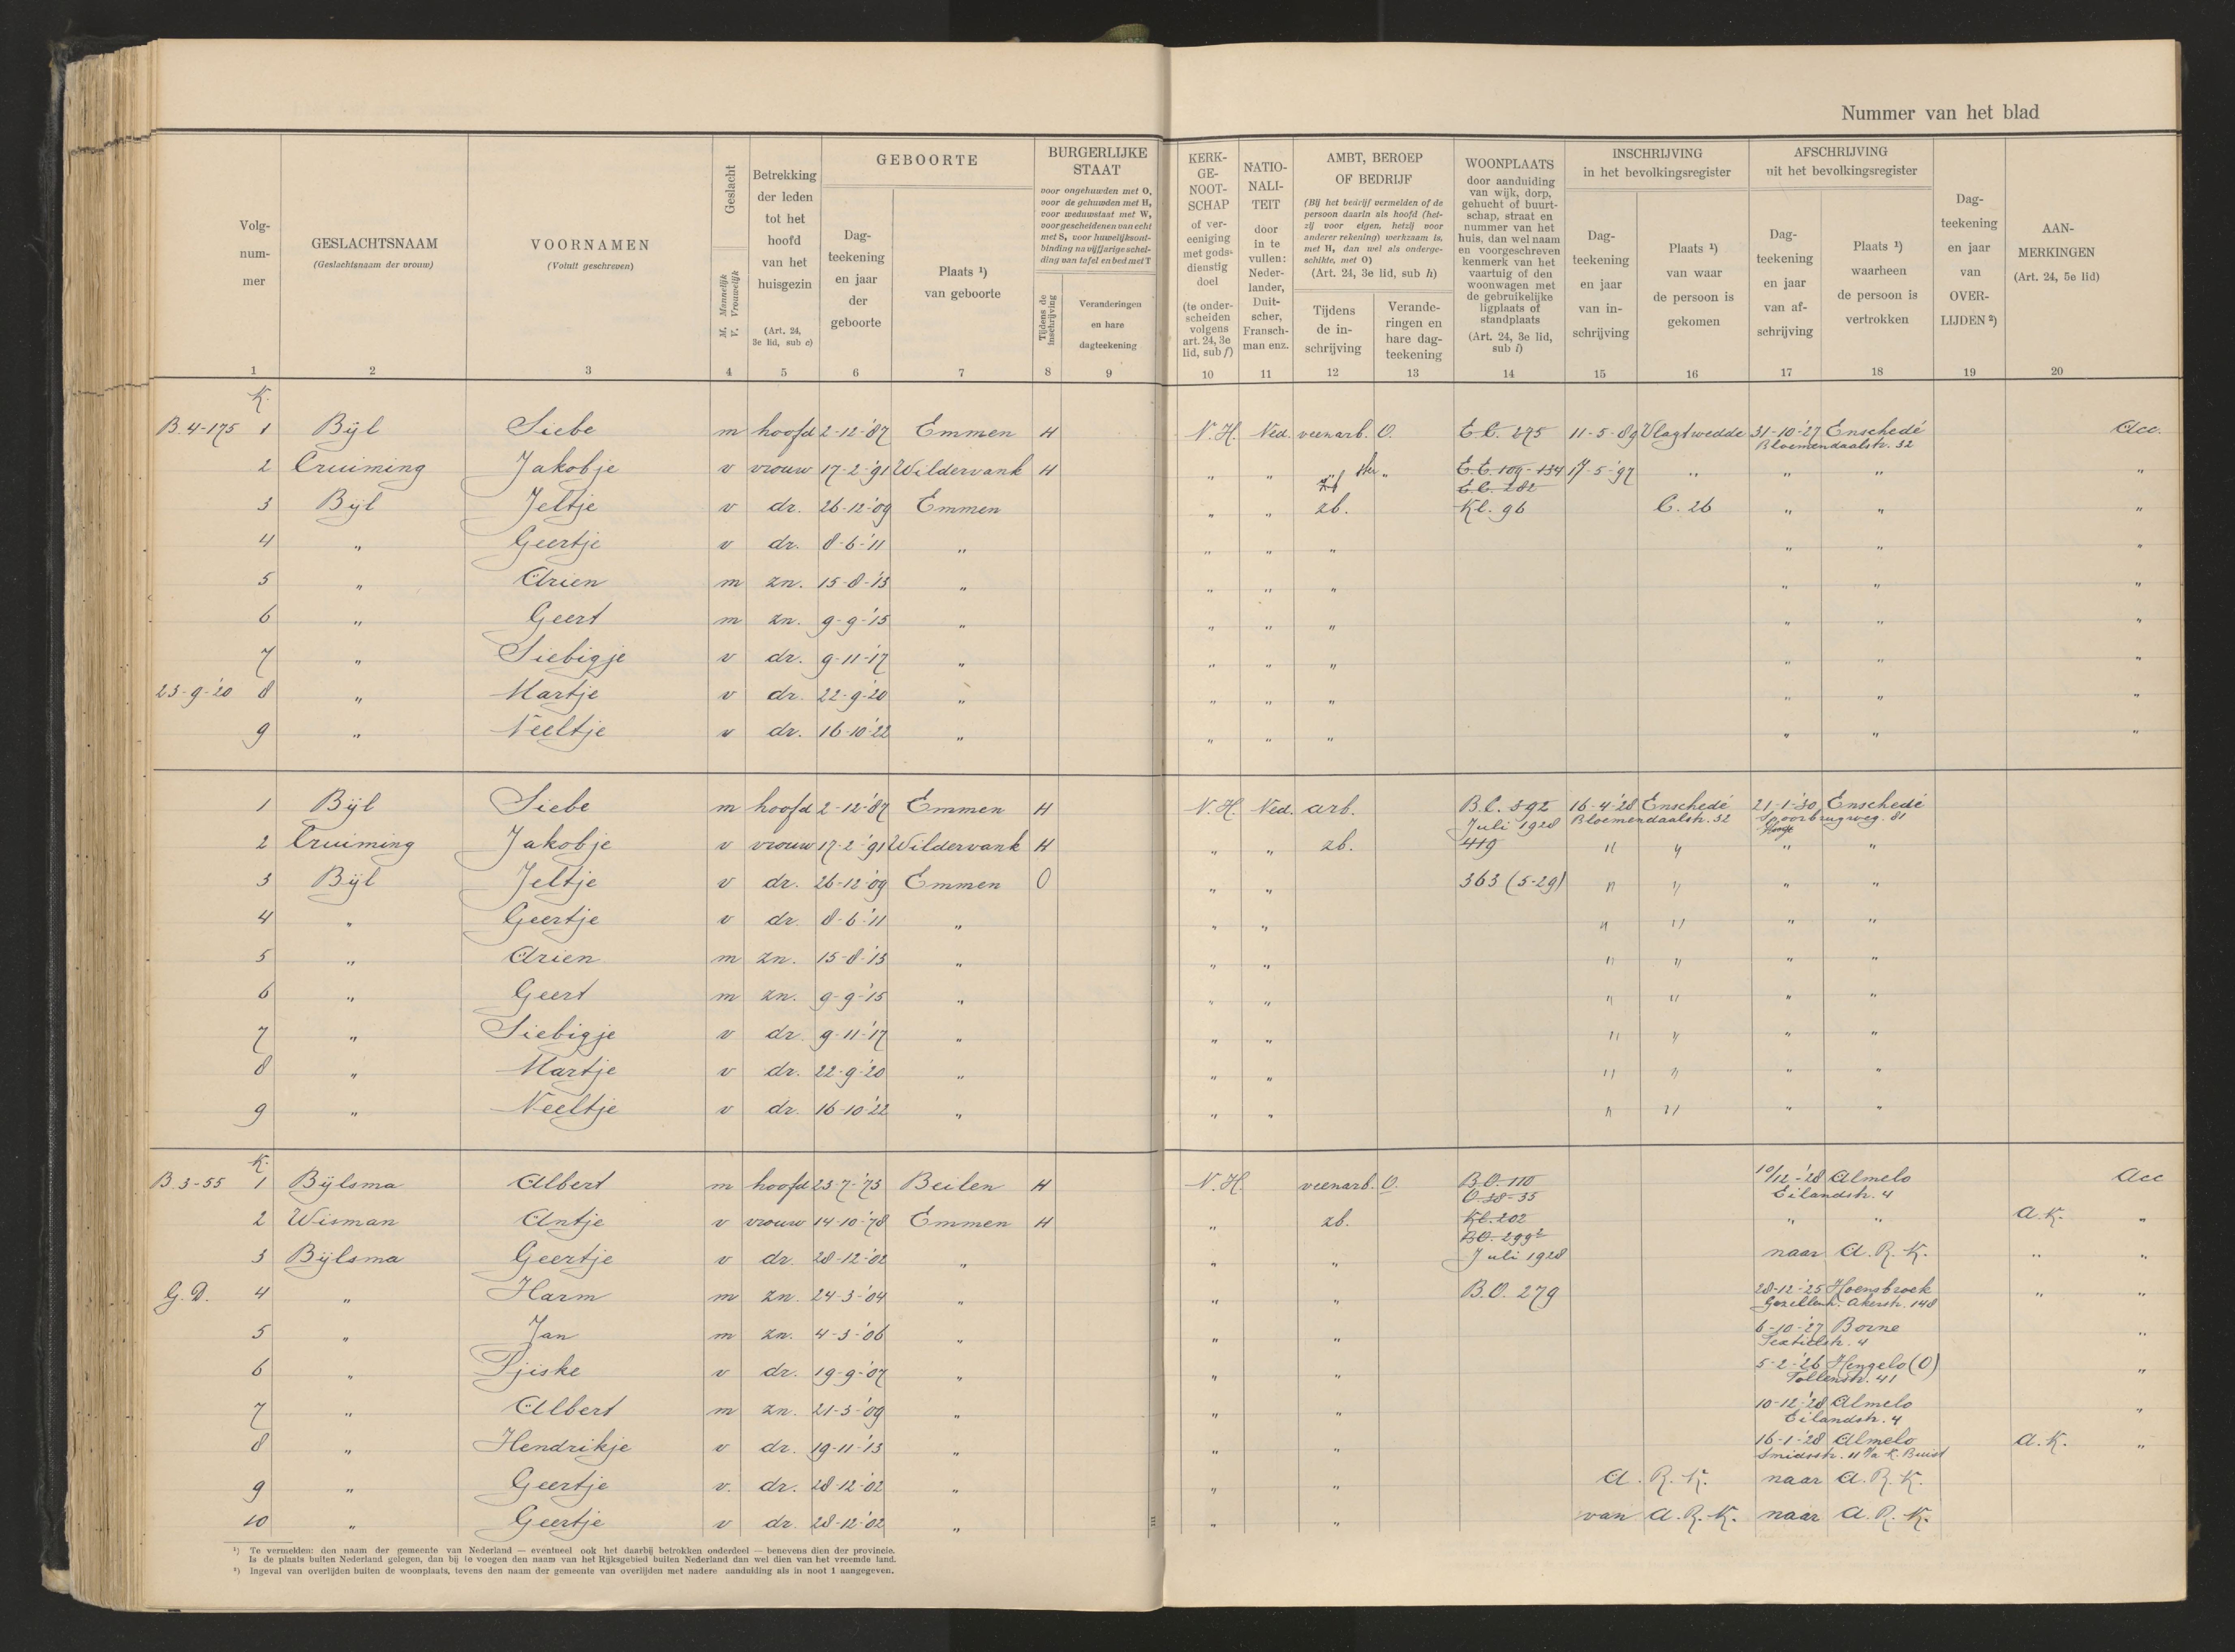 Nummer van het blad
Volg-
num-
mer
GESLACHTSNAAM
(Geslachtsnaam der vrouw)
VOORNAMEN
(Voluit geschreven)
Geslacht
M. Mannelijk
V. Vrouwelijk
Betrekking
der leden
tot het
hoofd
van het
huisgezin
(Art. 24,
3e lid, sub c)
GEBOORTE
Dag-
teekening
en jaar
der
geboorte
Plaats ¹)
van geboorte
BURGERLIJKE
STAAT
voor ongehuwden met O,
voor de gehuwden met H,
voor weduwstaat met W,
voor gescheidenen van echt
met S, voor huwelijksont-
binding na vijfjarige schei-
ding van tafel en bed met T
Tijdens de
inschrijving
Veranderingen
en hare
dagteekening
KERK-
GE-
NOOT-
SCHAP
of ver-
eeniging
met gods-
dienstig
doel
(te onder-
scheiden
volgens
art. 24, 3e
lid, sub f)
NATIO-
NALI-
TEIT
door
in te
vullen:
Neder-
lander,
Duit-
scher,
Fransch-
man enz.
AMBT, BEROEP
OF BEDRIJF
(Bij het bedrijf vermelden of de
persoon daarin als hoofd (het-
zij voor eigen, hetzij voor
anderer rekening) werkzaam is,
met H, dan wel als onderge-
schikte, met O)
(Art. 24, 3e lid, sub h)
Tijdens
de in-
schrijving
Verande-
ringen en
hare dag-
teekening
WOONPLAATS
door aanduiding
van wijk, dorp,
gehucht of buurt-
schap, straat en
nummer van het
huis, dan wel naam
en voorgeschreven
kenmerk van het
vaartuig of den
woonwagen met
de gebruikelijke
ligplaats of
standplaats
(Art. 24, 3e lid,
sub i)
INSCHRIJVING
in het bevolkingsregister
Dag-
teekening
en jaar
van in-
schrijving
Plaats ¹)
van waar
de persoon is
gekomen
AFSCHRIJVING
uit het bevolkingsregister
Dag-
teekening
en jaar
van af-
schrijving
Plaats ¹)
waarheen
de persoon is
vertrokken
Dag-
teekening
en jaar
van
OVER-
LIJDEN ²)
AAN-
MERKINGEN
(Art. 24, 5e lid)
1 2 3 4 5 6 7 8 9 10 11 12 13 14 15 16 17 18 19 20
K.
B. 4-175 1 Bijl Siebe m hoofd 2-12-'87 Emmen H N.H. Ned. veenarb. O. E.C. 295 11-5-89 Vlagtwedde 31-10-'27 Enschedé Acc.
Bloemendaalstr. 32
2 Cruiming Jakobje v vrouw 17-2-'91 Wildervank H „ „ „ E.E. 109-134 17-5-'97 „ „ „ „
E.C. 282
3 Bijl Jeltje v dr. 26-12-'09 Emmen „ „ zb. Kl. 96 C. 26 „ „ „
4 „ Geertje v dr. 8-6-'11 „ „ „ „ „ „ „
5 „ Arien m zn. 15-8-'13 „ „ „ „ „ „ „
6 „ Geert m zn. 9-9-'15 „ „ „ „ „ „ „
7 „ Siebigje v dr. 9-11-'17 „ „ „ „ „ „ „
23-9-'20 8 „ Martje v dr. 22-9-'20 „ „ „ „ „ „ „
9 „ Neeltje v dr. 16-10-'22 „ „ „ „ „ „ „
1 Bijl Siebe m hoofd 2-12-'87 Emmen H N.H. Ned. arb. B.C. 392 16-4-'28 Enschedé 21-1-'30 Enschedé
Juli 1928 Bloemendaalstr. 32 Spoorbrugweg. 81
2 Cruiming Jakobje v vrouw 17-2-'91 Wildervank H „ „ zb. 419 „ „ „ „
3 Bijl Jeltje v dr. 26-12-'09 Emmen O „ „ 363 (5-29) „ „ „ „
4 „ Geertje v dr. 8-6-'11 „ „ „ „ „ „ „
5 „ Arien m zn. 15-8-'13 „ „ „ „ „ „ „
6 „ Geert m zn. 9-9-'15 „ „ „ „ „ „ „
7 „ Siebigje v dr. 9-11-'17 „ „ „ „ „ „ „
8 „ Martje v dr. 22-9-'20 „ „ „ „ „ „ „
9 „ Neeltje v dr. 16-10-'22 „ „ „ „ „ „ „
K.
B. 3-55 1 Bijlsma Albert m hoofd 23-7-'73 Beilen H N.H. veenarb. O. B.O. 110 10/12-'28 Almelo Acc
O. 38-35 Eilandstr. 4
2 Wisman Antje v vrouw 14-10-'78 Emmen H „ zb. Kl. 202 „ „ A.K. „
B.O. 299²
3 Bijlsma Geertje v dr. 28-12-'02 „ „ „ Juli 1928 naar A.R.K. „ „
G.D. 4 „ Harm m zn. 24-3-'04 „ „ „ B.O. 279 28-12-'25 Hoensbroek „ „
Gezellenh. Akerstr. 148
5 „ Jan m zn. 4-3-'06 „ „ „ 6-10-'27 Borne „
Textielstr. 4
6 „ Tjiske v dr. 19-9-'07 „ „ „ 5-2-'26 Hengelo (O) „
Tollenstr. 41
7 „ Albert m zn. 21-3-'09 „ „ „ 10-12-'28 Almelo „
Eilandstr. 4
8 „ Hendrikje v dr. 19-11-'13 „ „ „ 16-1-'28 Almelo A.K. „
Smidsstr. 11 p/a K. Buist
9 „ Geertje v. dr. 28-12-'02 „ „ „ A.R.K. naar A.R.K.
10 „ Geertje v dr. 28-12-'02 „ „ „ van A.R.K. naar A.R.K.
¹) Te vermelden: den naam der gemeente van Nederland — eventueel ook het daarbij betrokken onderdeel — benevens dien der provincie.
Is de plaats buiten Nederland gelegen, dan bij te voegen den naam van het Rijksgebied buiten Nederland dan wel dien van het vreemde land.
²) Ingeval van overlijden buiten de woonplaats, tevens den naam der gemeente van overlijden met nadere aanduiding als in noot 1 aangegeven.